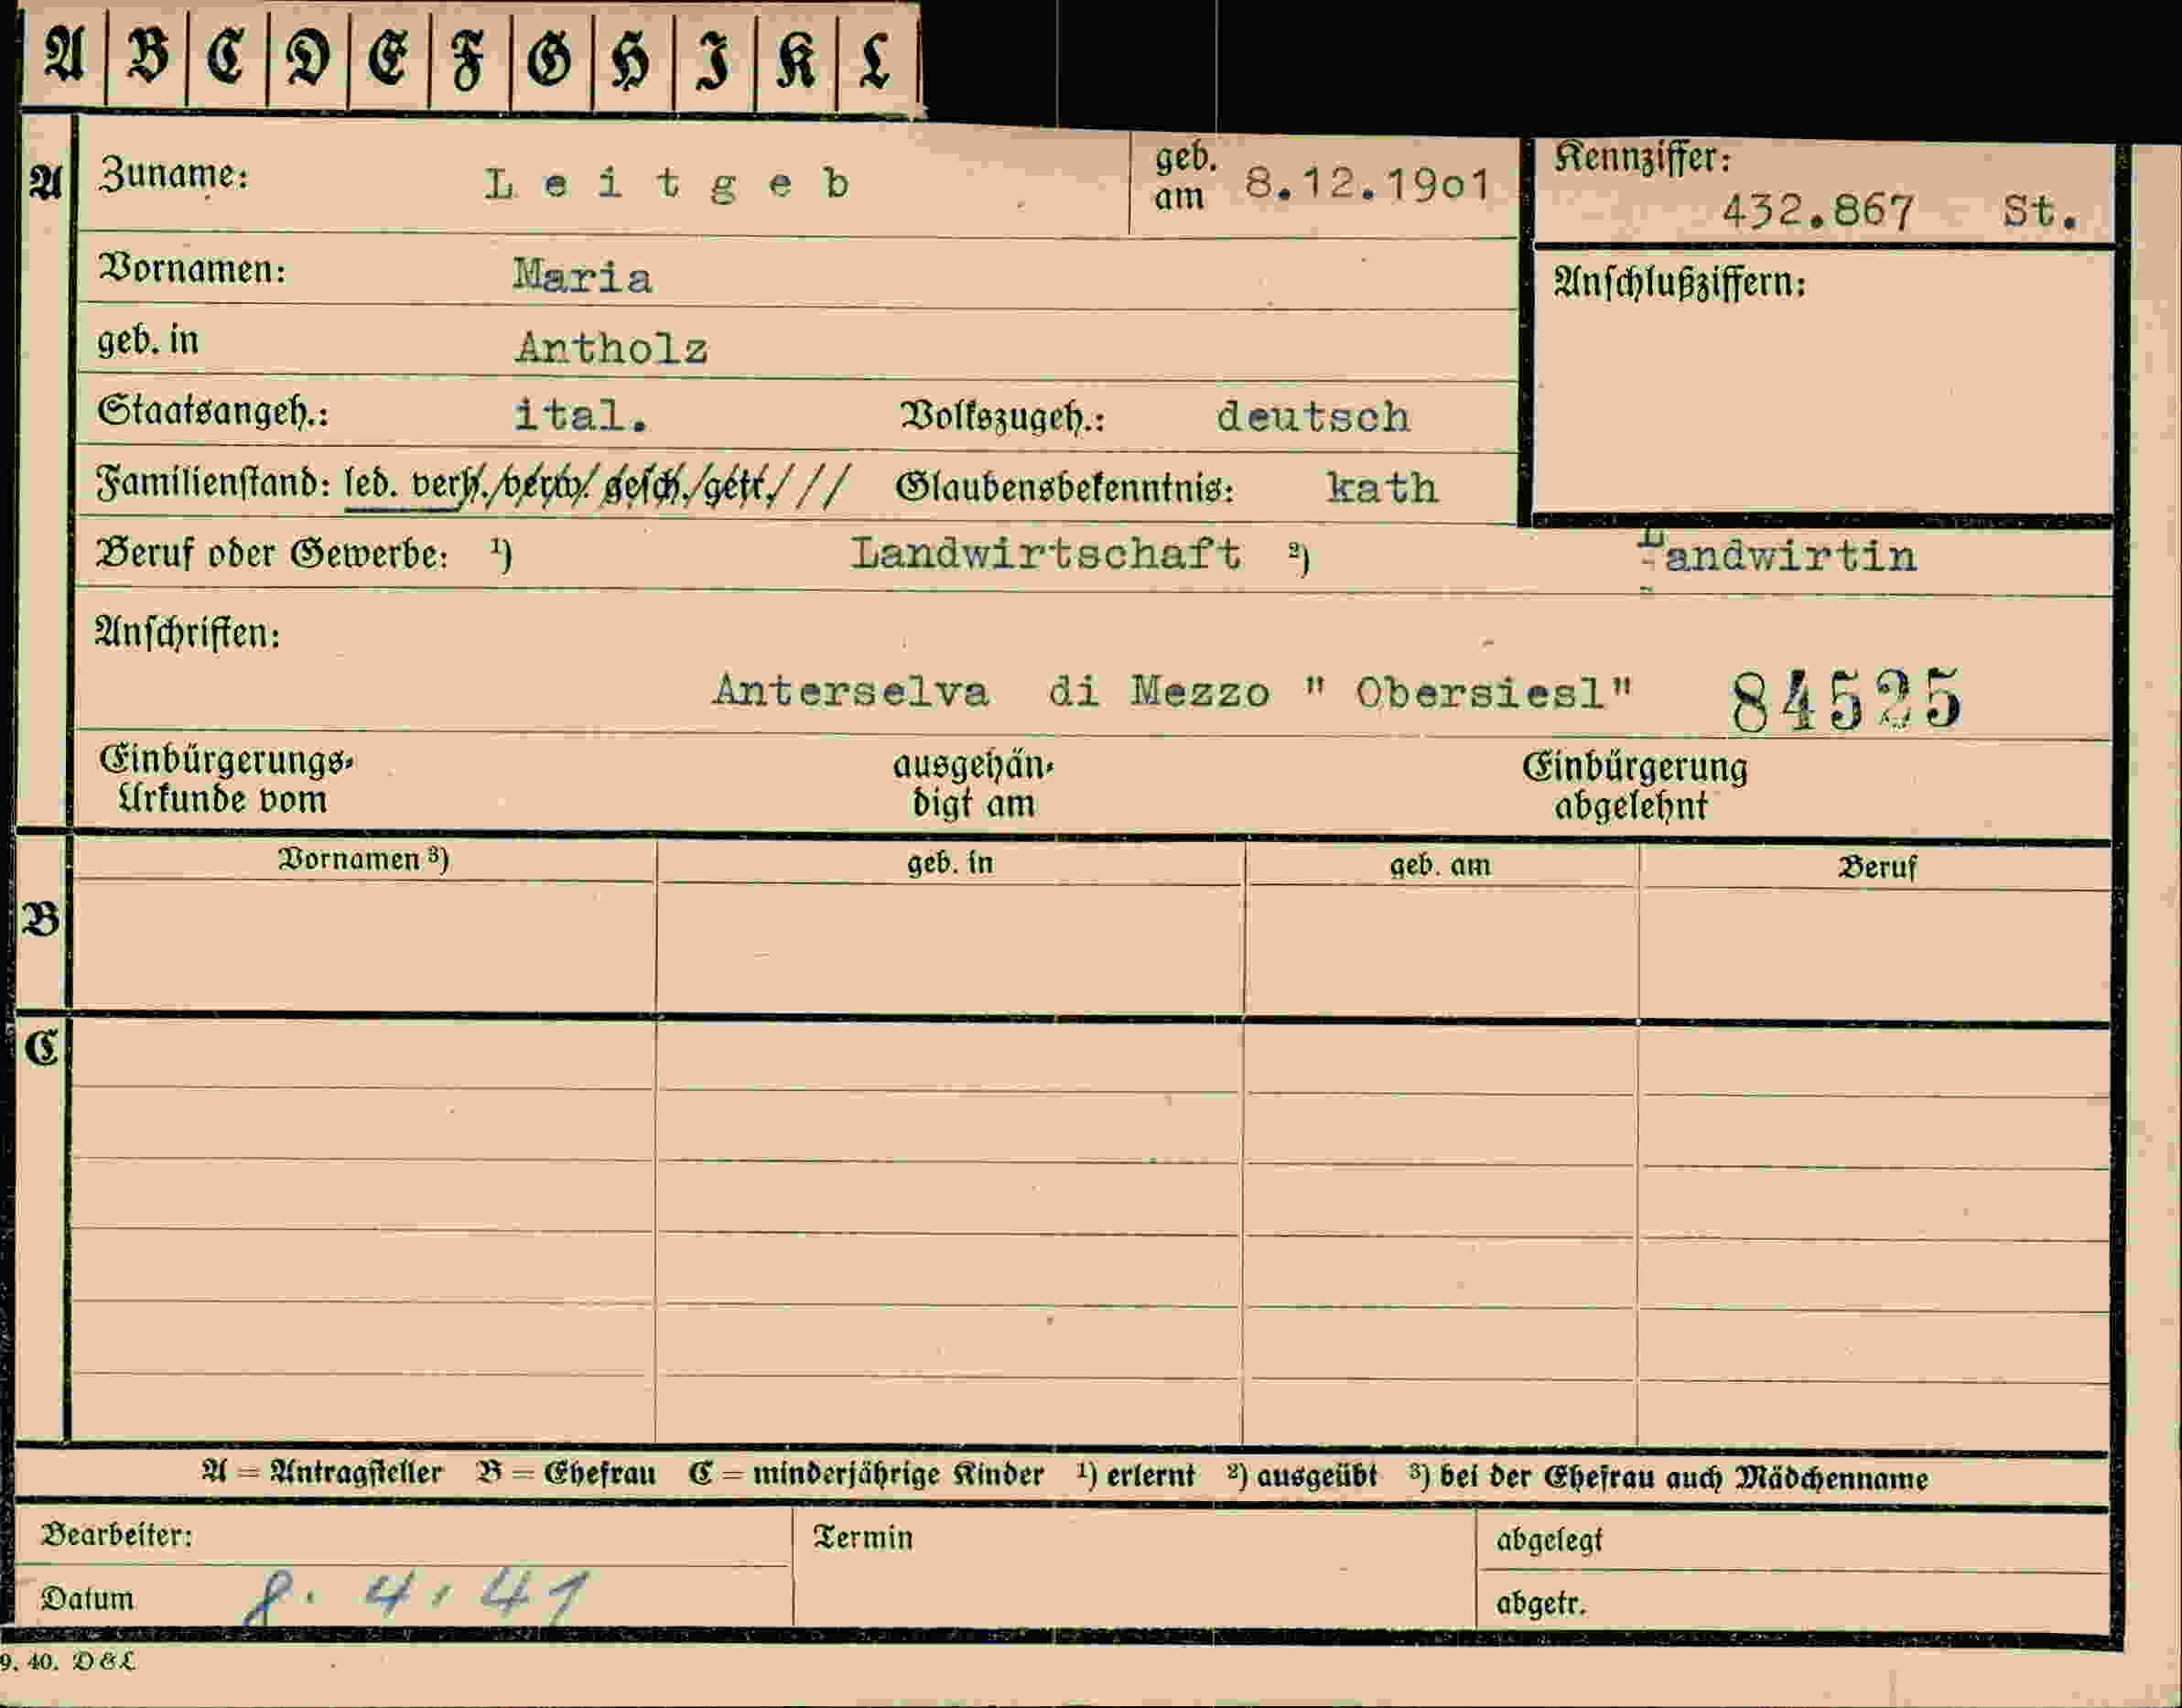 A B C D E F G H I K L
A Zuname: Leitgeb geb. am 8.12.1901 Kennziffer: 432.867 St.
Vornamen: Maria Anschlußziffern:
geb. in Antholz
Staatsangeh.: ital. Volkszugeh.: deutsch
Familienstand: led. verh./verw./gesch./getr./// Glaubensbekenntnis: kath
Beruf oder Gewerbe: ¹) Landwirtschaft ²) Landwirtin
Anschriften:
Anterselva di Mezzo " Obersiesl" 84525
Einbürgerungs- ausgehän- Einbürgerung
Urkunde vom digt am abgelehnt
Vornamen ³) geb. in geb. am Beruf
B
C
A = Antragsteller B = Ehefrau C = minderjährige Kinder ¹) erlernt ²) ausgeübt ³) bei der Ehefrau auch Mädchenname
Bearbeiter: Termin abgelegt
Datum 8. 4. 41 abgetr.
9. 40. D&L